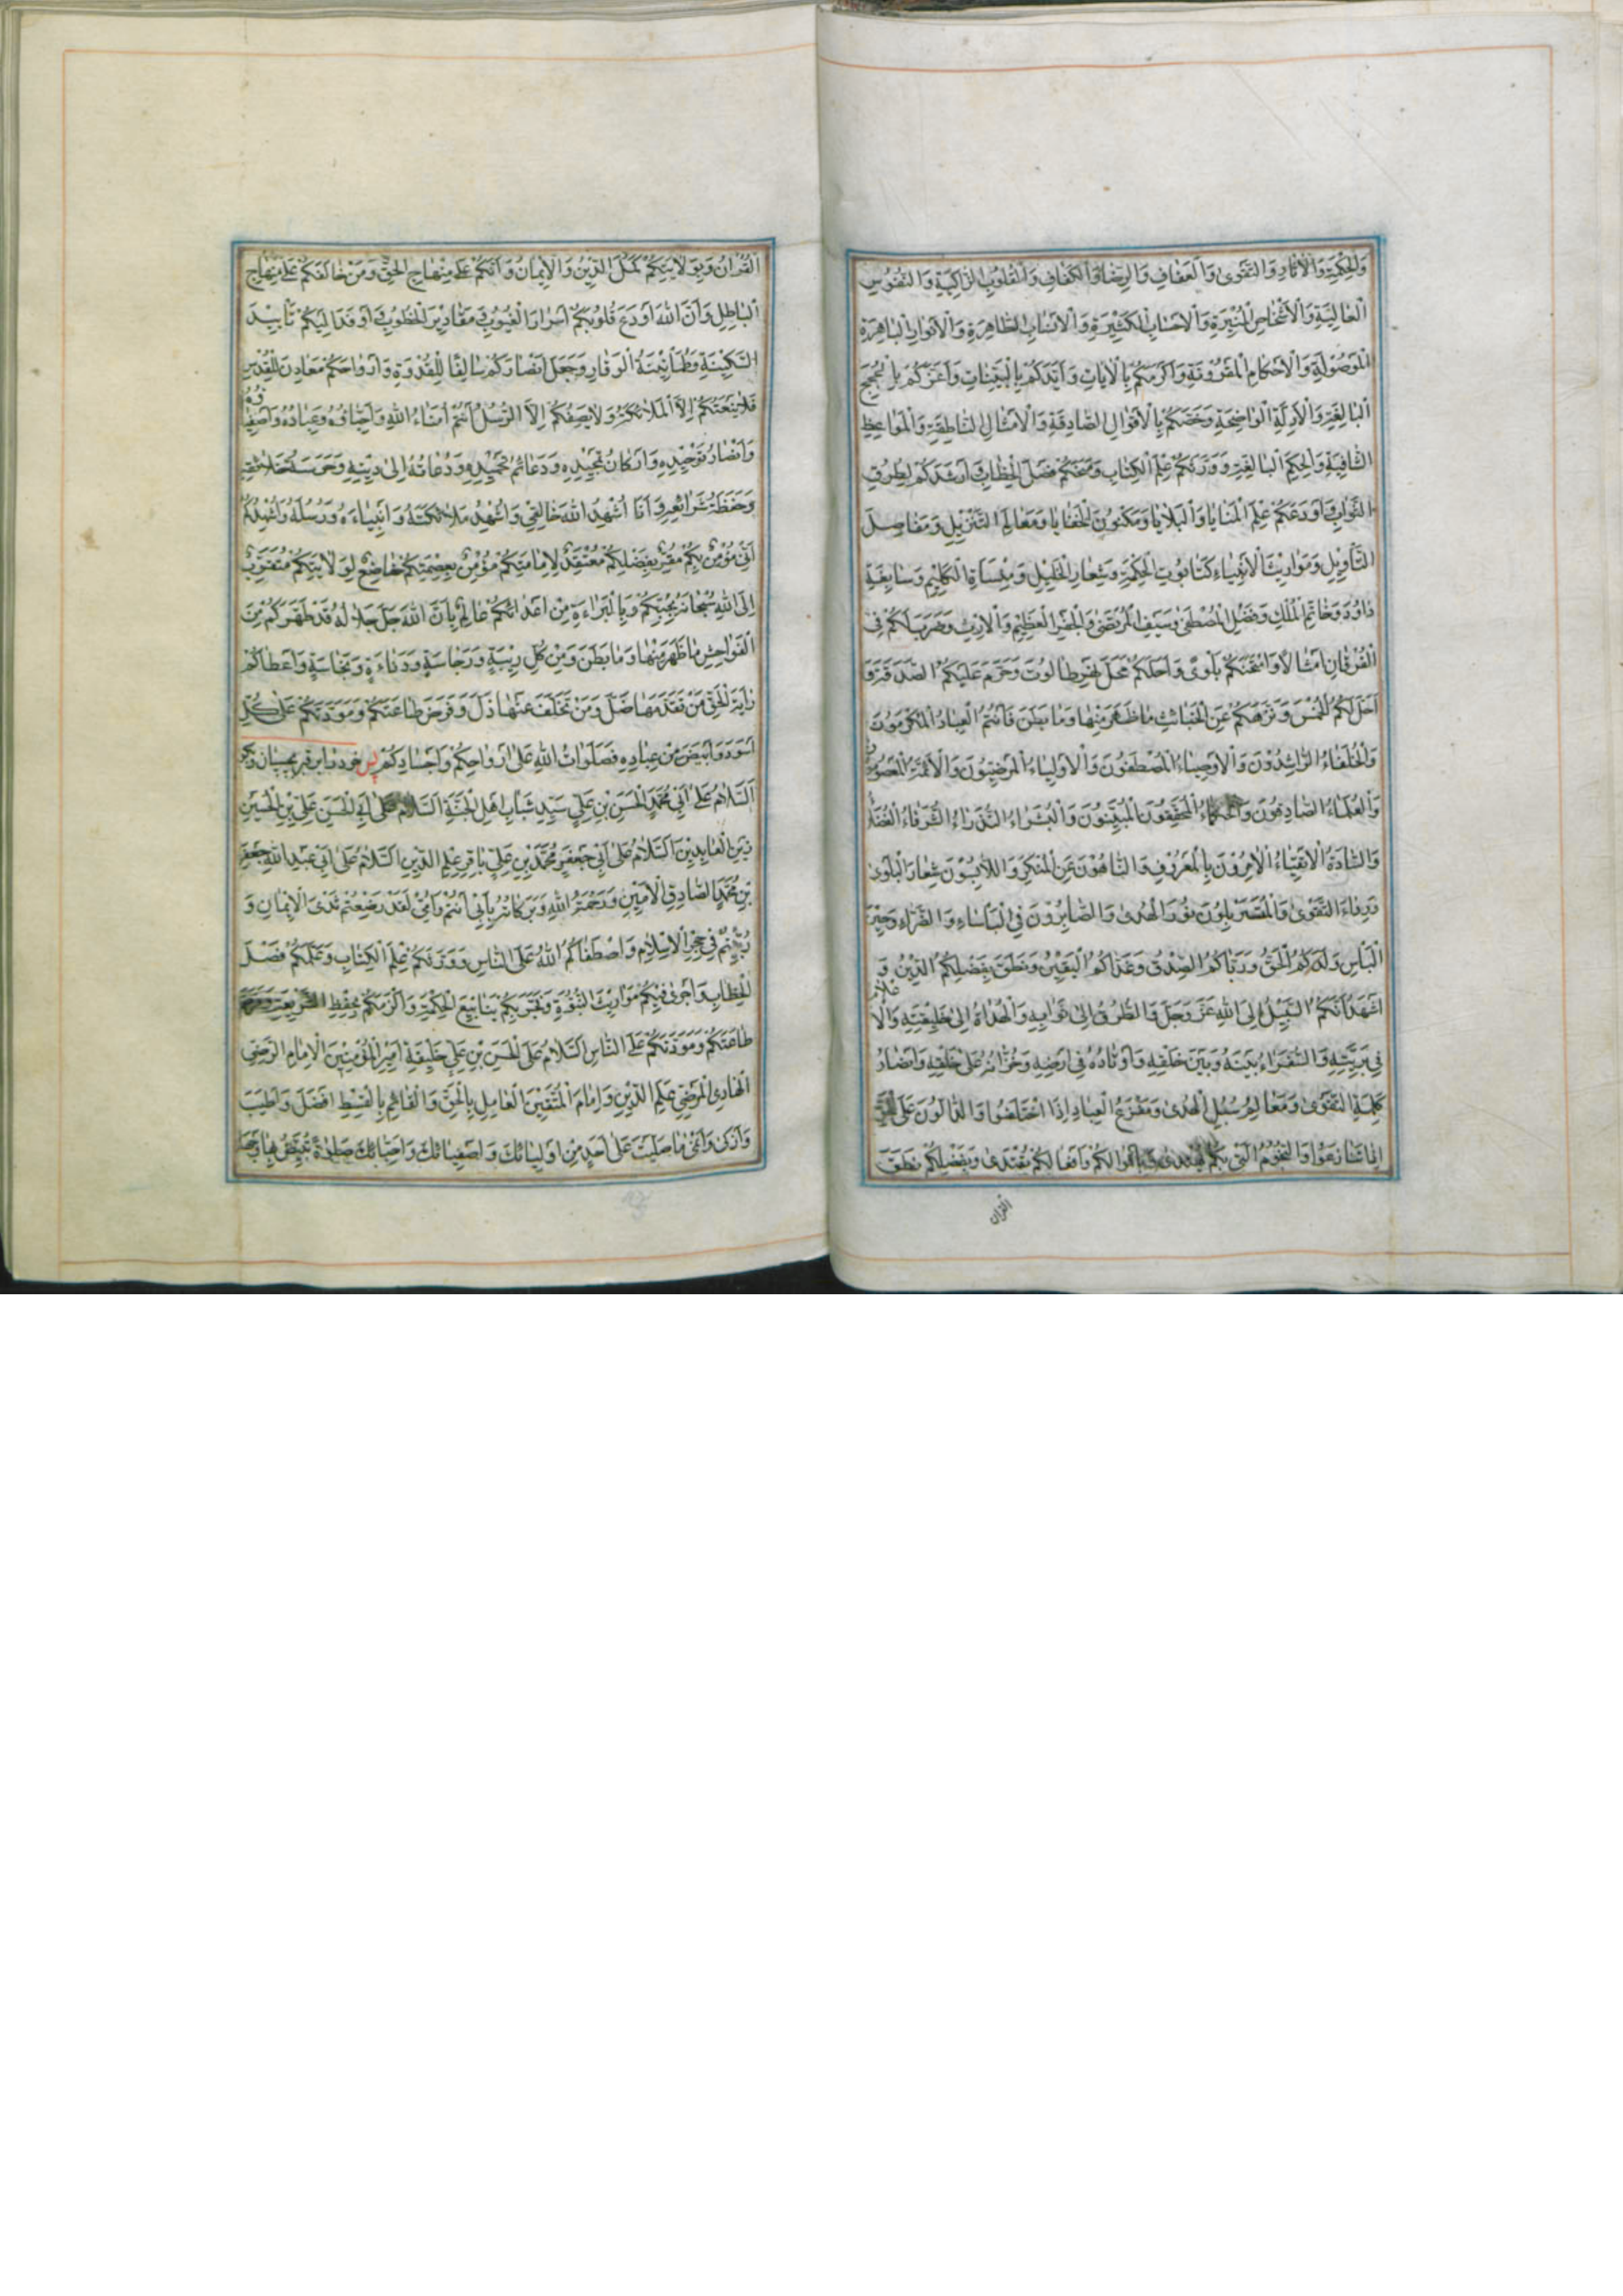 وَالْحِكْمَةِ وَالْاٰثَارِ وَالتَّقْوٰى وَالْعَفَافِ وَالرِّضَا وَالْكَفَافِ وَالْقُلُوبِ الزَّاكِيَةِ وَالنُّفُوسِ
الْعَالِيَةِ وَالْاَشْخَاصِ الْمُنِيرَةِ وَالْاَحْسَابِ الْكَثِيرَةِ وَالْاَنْسَابِ الطَّاهِرَةِ وَالْاَنْوَارِ الْبَاهِرَةِ
الْمَوْصُولَةِ وَالْاَحْكَامِ الْمَقْرُونَةِ وَاَكْرَمَكُمْ بِالْاٰيَاتِ وَاَيَّدَكُمْ بِالْبَيِّنَاتِ وَاَعَزَّكُمْ بِالْحُجَجِ
الْبَالِغَةِ وَالْاَدِلَّةِ الْوَاضِحَةِ وَخَصَّكُمْ بِالْاَقْوَالِ الصَّادِقَةِ وَالْاَمْثَالِ النَّاطِقَةِ وَالْمَوَاعِظِ
الشَّافِيَةِ وَالْحِكَمِ الْبَالِغَةِ وَوَرَّثَكُمْ عِلْمَ الْكِتَابِ وَمَنَحَكُمْ فَصْلَ الْخِطَابِ وَاَرْشَدَكُمْ لِطُرُقِ
الصَّوَابِ وَاَوْدَعَكُمْ عِلْمَ الْمَنَايَا وَالْبَلَايَا وَمَكْنُونَ الْخَفَايَا وَمَعَالِمَ التَّنْزِيلِ وَمَفَاصِلَ
التَّأْوِيلِ وَمَوَارِيثَ الْاَنْبِيَاءِ كَتَابُوتِ الْحِكْمَةِ وَشِعَارِ الْخَلِيلِ وَمِنْسَاةِ الْكَلِيمِ وَسَابِغَةِ
دَاوُدَ وَخَاتَمِ الْمُلْكِ وَفَضْلِ الْمُصْطَفٰى وَسَيْفِ الْمُرْتَضٰى وَالْجَفْرِ الْعَظِيمِ وَالْاِرْثِ وَضَرَبَ لَكُمْ فِي
الْفُرْقَانِ اَمْثَالًا وَامْتَحَنَكُمْ بَلْوًى وَاَحَلَّكُمْ مَحَلَّ نَهَرِ طَالُوتَ وَحَرَّمَ عَلَيْكُمُ الصَّدَقَةَ وَ
اَحَلَّ لَكُمُ الْخُمْسَ وَنَزَّهَكُمْ عَنِ الْخَبَائِثِ مَا ظَهَرَ مِنْهَا وَمَا بَطَنَ فَاَنْتُمُ الْعِبَادُ الْمُكَرَّمُونَ
وَالْخُلَفَاءُ الرَّاشِدُونَ وَالْاَوْصِيَاءُ الْمُصْطَفَوْنَ وَالْاَوْلِيَاءُ الْمَرْضِيُّونَ وَالْاَئِمَّةُ الْمَعْصُومُونَ
وَالْعُلَمَاءُ الصَّادِقُونَ وَالْحُكَمَاءُ الْمُحَقِّقُونَ الْمُبَيِّنُونَ وَالْبُشَرَاءُ النُّذَرَاءُ الشُّرَفَاءُ الْفُضَلَاءُ
وَالسَّادَةُ الْاَتْقِيَاءُ الْاٰمِرُونَ بِالْمَعْرُوفِ وَالنَّاهُونَ عَنِ الْمُنْكَرِ وَاللَّابِسُونَ شِعَارَ الْبَلْوٰى
وَرِدَاءَ التَّقْوٰى وَالْمُتَسَرْبِلُونَ نُورَ الْهُدٰى وَالصَّابِرُونَ فِي الْبَأْسَاءِ وَالضَّرَّاءِ وَحِينَ
الْبَأْسِ وَلَدَكُمُ الْحَقُّ وَرَبَّاكُمُ الصِّدْقُ وَغَذَّاكُمُ الْيَقِينُ وَنَطَقَ بِفَضْلِكُمُ الدِّينُ وَ
اَشْهَدُ اَنَّكُمُ السَّبِيلُ اِلَى اللهِ عَزَّ وَجَلَّ وَالطُّرُقُ اِلٰى ثَوَابِهِ وَالْهُدَاةُ اِلٰى خَلِيقَتِهِ وَالْاَعْلَامُ
فِي بَرِيَّتِهِ وَالسُّفَرَاءُ بَيْنَهُ وَبَيْنَ خَلْقِهِ وَاَوْتَادُهُ فِي اَرْضِهِ وَخُزَّانُهُ عَلٰى خَلْقِهِ وَاَنْصَارُ
كَلِمَةِ التَّقْوٰى وَمَعَالِمُ سُبُلِ الْهُدٰى وَمَفْزَعُ الْعِبَادِ اِذَا اخْتَلَفُوا وَالدَّالُّونَ عَلَى الْحَقِّ
اِذَا تَنَازَعُوا وَالنُّجُومُ الَّتِي بِكُمْ يُهْتَدٰى وَبِاَقْوَالِكُمْ وَاَفْعَالِكُمْ يُقْتَدٰى وَبِفَضْلِكُمْ نَطَقَ
القران
الْقُرْاٰنُ وَبِوَلَايَتِكُمْ كَمُلَ الدِّينُ وَالْاِيمَانُ وَاَنَّكُمْ عَلٰى مِنْهَاجِ الْحَقِّ وَمَنْ خَالَفَكُمْ عَلٰى مِنْهَاجِ
الْبَاطِلِ وَاَنَّ اللهَ اَوْدَعَ قُلُوبَكُمْ اَسْرَارَ الْغُيُوبِ وَمَقَادِيرَ الْخُطُوبِ وَاَوْفَدَ اِلَيْكُمْ تَأْيِيدَ
السَّكِينَةِ وَطُمَأْنِينَةَ الْوَقَارِ وَجَعَلَ اَبْصَارَكُمْ مَأْلَفًا لِلْقُدْرَةِ وَاَرْوَاحَكُمْ مَعَادِنَ لِلْقُدْسِ
فَلَا يَنْعَتُكُمْ اِلَّا الْمَلَائِكَةُ وَلَا يَصِفُكُمْ اِلَّا الرُّسُلُ اَنْتُمْ اُمَنَاءُ اللهِ وَاَحِبَّاؤُهُ وَعِبَادُهُ وَاَصْفِيَاؤُهُ
وَاَنْصَارُ تَوْحِيدِهِ وَاَرْكَانُ تَمْجِيدِهِ وَدَعَائِمُ تَحْمِيدِهِ وَدُعَاتُهُ اِلٰى دِينِهِ وَحَرَسَةُ خَلَائِقِهِ
وَحَفَظَةُ شَرَائِعِهِ وَاَنَا اُشْهِدُ اللهَ خَالِقِي وَاُشْهِدُ مَلَائِكَتَهُ وَاَنْبِيَاءَهُ وَرُسُلَهُ وَاُشْهِدُكُمْ
اَنِّي مُؤْمِنٌ بِكُمْ مُقِرٌّ بِفَضْلِكُمْ مُعْتَقِدٌ لِاِمَامَتِكُمْ مُؤْمِنٌ بِعِصْمَتِكُمْ خَاضِعٌ لِوَلَايَتِكُمْ مُتَقَرِّبٌ
اِلَى اللهِ سُبْحَانَهُ بِحُبِّكُمْ وَبِالْبَرَاءَةِ مِنْ اَعْدَائِكُمْ عَالِمٌ بِاَنَّ اللهَ جَلَّ جَلَالُهُ قَدْ طَهَّرَكُمْ مِنَ
الْفَوَاحِشِ مَا ظَهَرَ مِنْهَا وَمَا بَطَنَ وَمِنْ كُلِّ رِيبَةٍ وَرَجَاسَةٍ وَدَنَاءَةٍ وَنَجَاسَةٍ وَاَعْطَاكُمْ
رَايَةَ الْحَقِّ مَنْ تَقَدَّمَهَا ضَلَّ وَمَنْ تَخَلَّفَ عَنْهَا ذَلَّ وَفَرَضَ طَاعَتَكُمْ وَمَوَدَّتَكُمْ عَلٰى كُلِّ
اَسْوَدَ وَاَبْيَضَ مِنْ عِبَادِهِ فَصَلَوَاتُ اللهِ عَلٰى اَرْوَاحِكُمْ وَاَجْسَادِكُمْ پس خود را بر قبر بچسبان و بگو
اَلسَّلَامُ عَلٰى اَبِي مُحَمَّدٍ الْحَسَنِ بْنِ عَلِيٍّ سَيِّدِ شَبَابِ اَهْلِ الْجَنَّةِ اَلسَّلَامُ عَلٰى اَبِي الْحَسَنِ عَلِيِّ بْنِ الْحُسَيْنِ
زَيْنِ الْعَابِدِينَ اَلسَّلَامُ عَلٰى اَبِي جَعْفَرٍ مُحَمَّدِ بْنِ عَلِيٍّ بَاقِرِ عِلْمِ الدِّينِ اَلسَّلَامُ عَلٰى اَبِي عَبْدِ اللهِ جَعْفَرِ
بْنِ مُحَمَّدٍ الصَّادِقِ الْاَمِينِ وَرَحْمَةُ اللهِ وَبَرَكَاتُهُ بِاَبِي اَنْتُمْ وَاُمِّي لَقَدْ رَضَعْتُمْ ثَدْىَ الْاِيمَانِ وَ
رُبِّيتُمْ فِي حِجْرِ الْاِسْلَامِ وَاصْطَفَاكُمُ اللهُ عَلَى النَّاسِ وَوَرَّثَكُمْ عِلْمَ الْكِتَابِ وَعَلَّمَكُمْ فَصْلَ
الْخِطَابِ وَاَجْرٰى فِيكُمْ مَوَارِيثَ النُّبُوَّةِ وَفَجَّرَ بِكُمْ يَنَابِيعَ الْحِكْمَةِ وَاَلْزَمَكُمْ بِحِفْظِ الشَّرِيعَةِ وَفَرَضَ
طَاعَتَكُمْ وَمَوَدَّتَكُمْ عَلَى النَّاسِ اَلسَّلَامُ عَلَى الْحَسَنِ بْنِ عَلِيٍّ خَلِيفَةِ اَمِيرِ الْمُؤْمِنِينَ الْاِمَامِ الرَّضِيِّ
الْهَادِي الْمَرْضِيِّ عَلَمِ الدِّينِ وَاِمَامِ الْمُتَّقِينَ الْعَامِلِ بِالْحَقِّ وَالْقَائِمِ بِالْقِسْطِ اَفْضَلَ وَاَطْيَبَ
وَاَزْكٰى وَاَنْمٰى مَا صَلَّيْتَ عَلٰى اَحَدٍ مِنْ اَوْلِيَائِكَ وَاَصْفِيَائِكَ وَاَحِبَّائِكَ صَلٰوةً تُبَيِّضُ بِهَا وَجْهَهُ